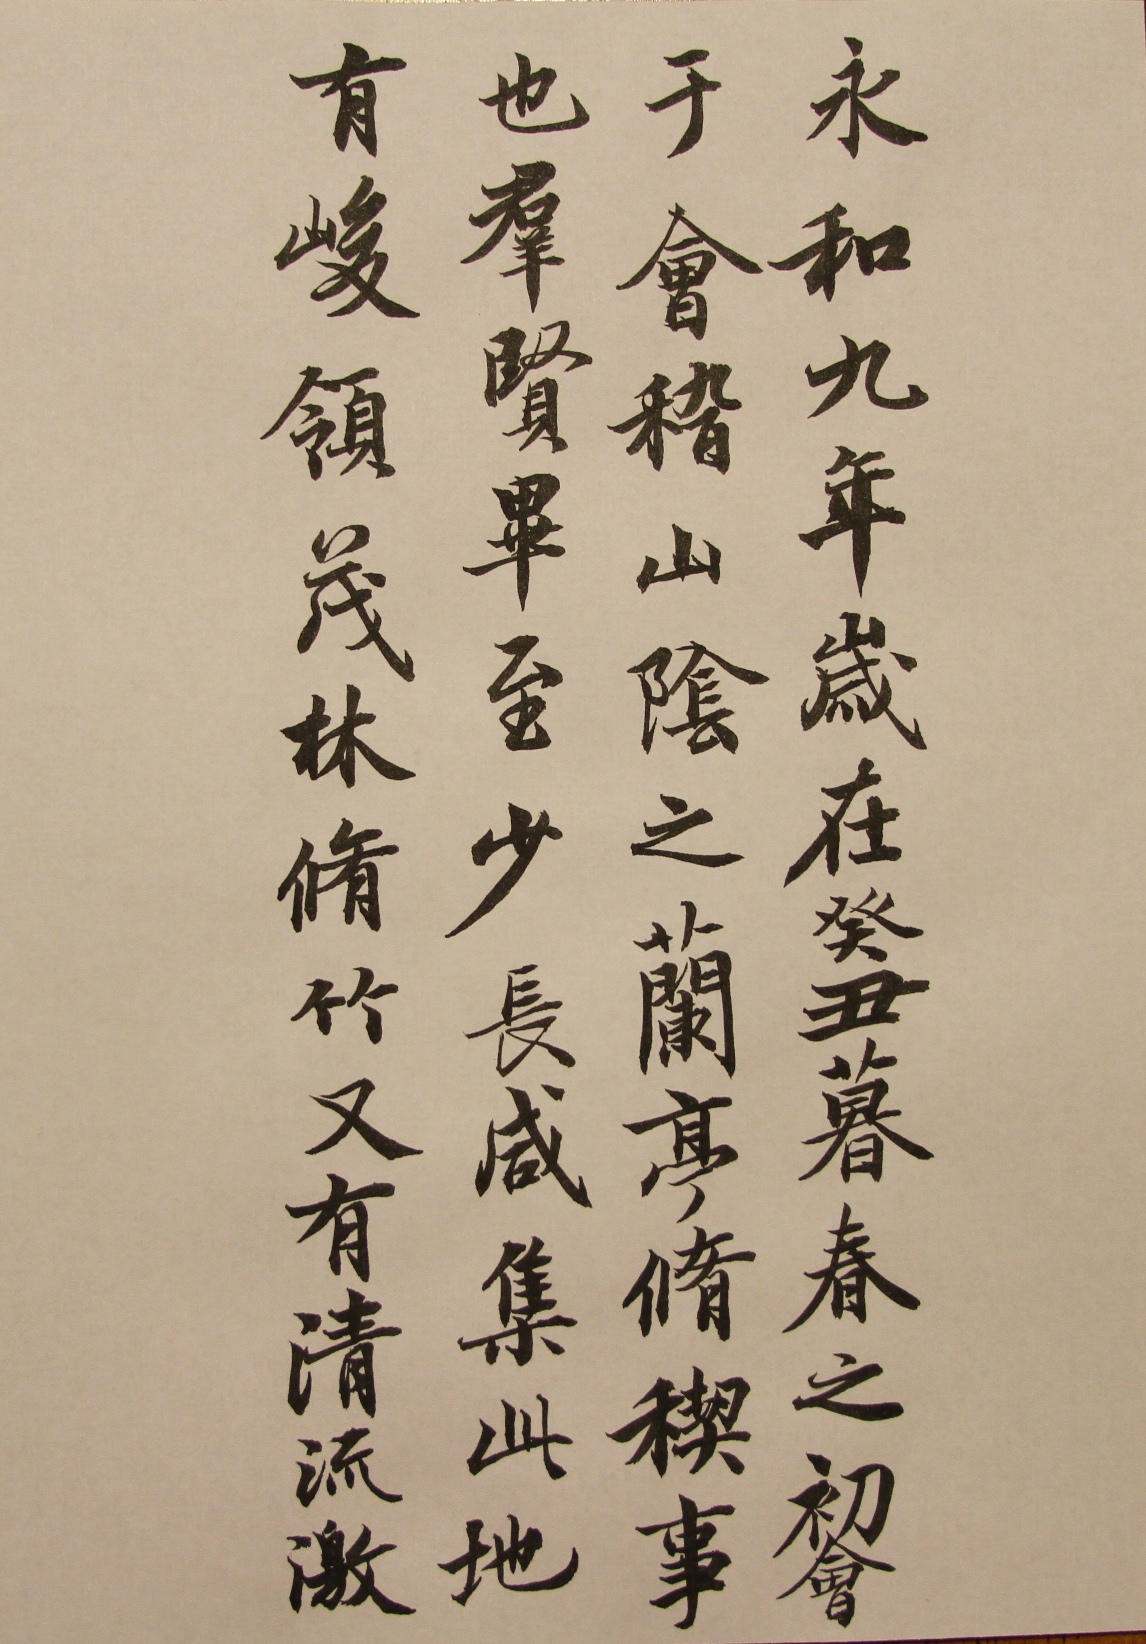 永和九年歲在癸丑暮春之初會
于會稽山陰之蘭亭脩稧事
也羣賢畢至少長咸集此地
有峻領茂林脩竹又有清流激